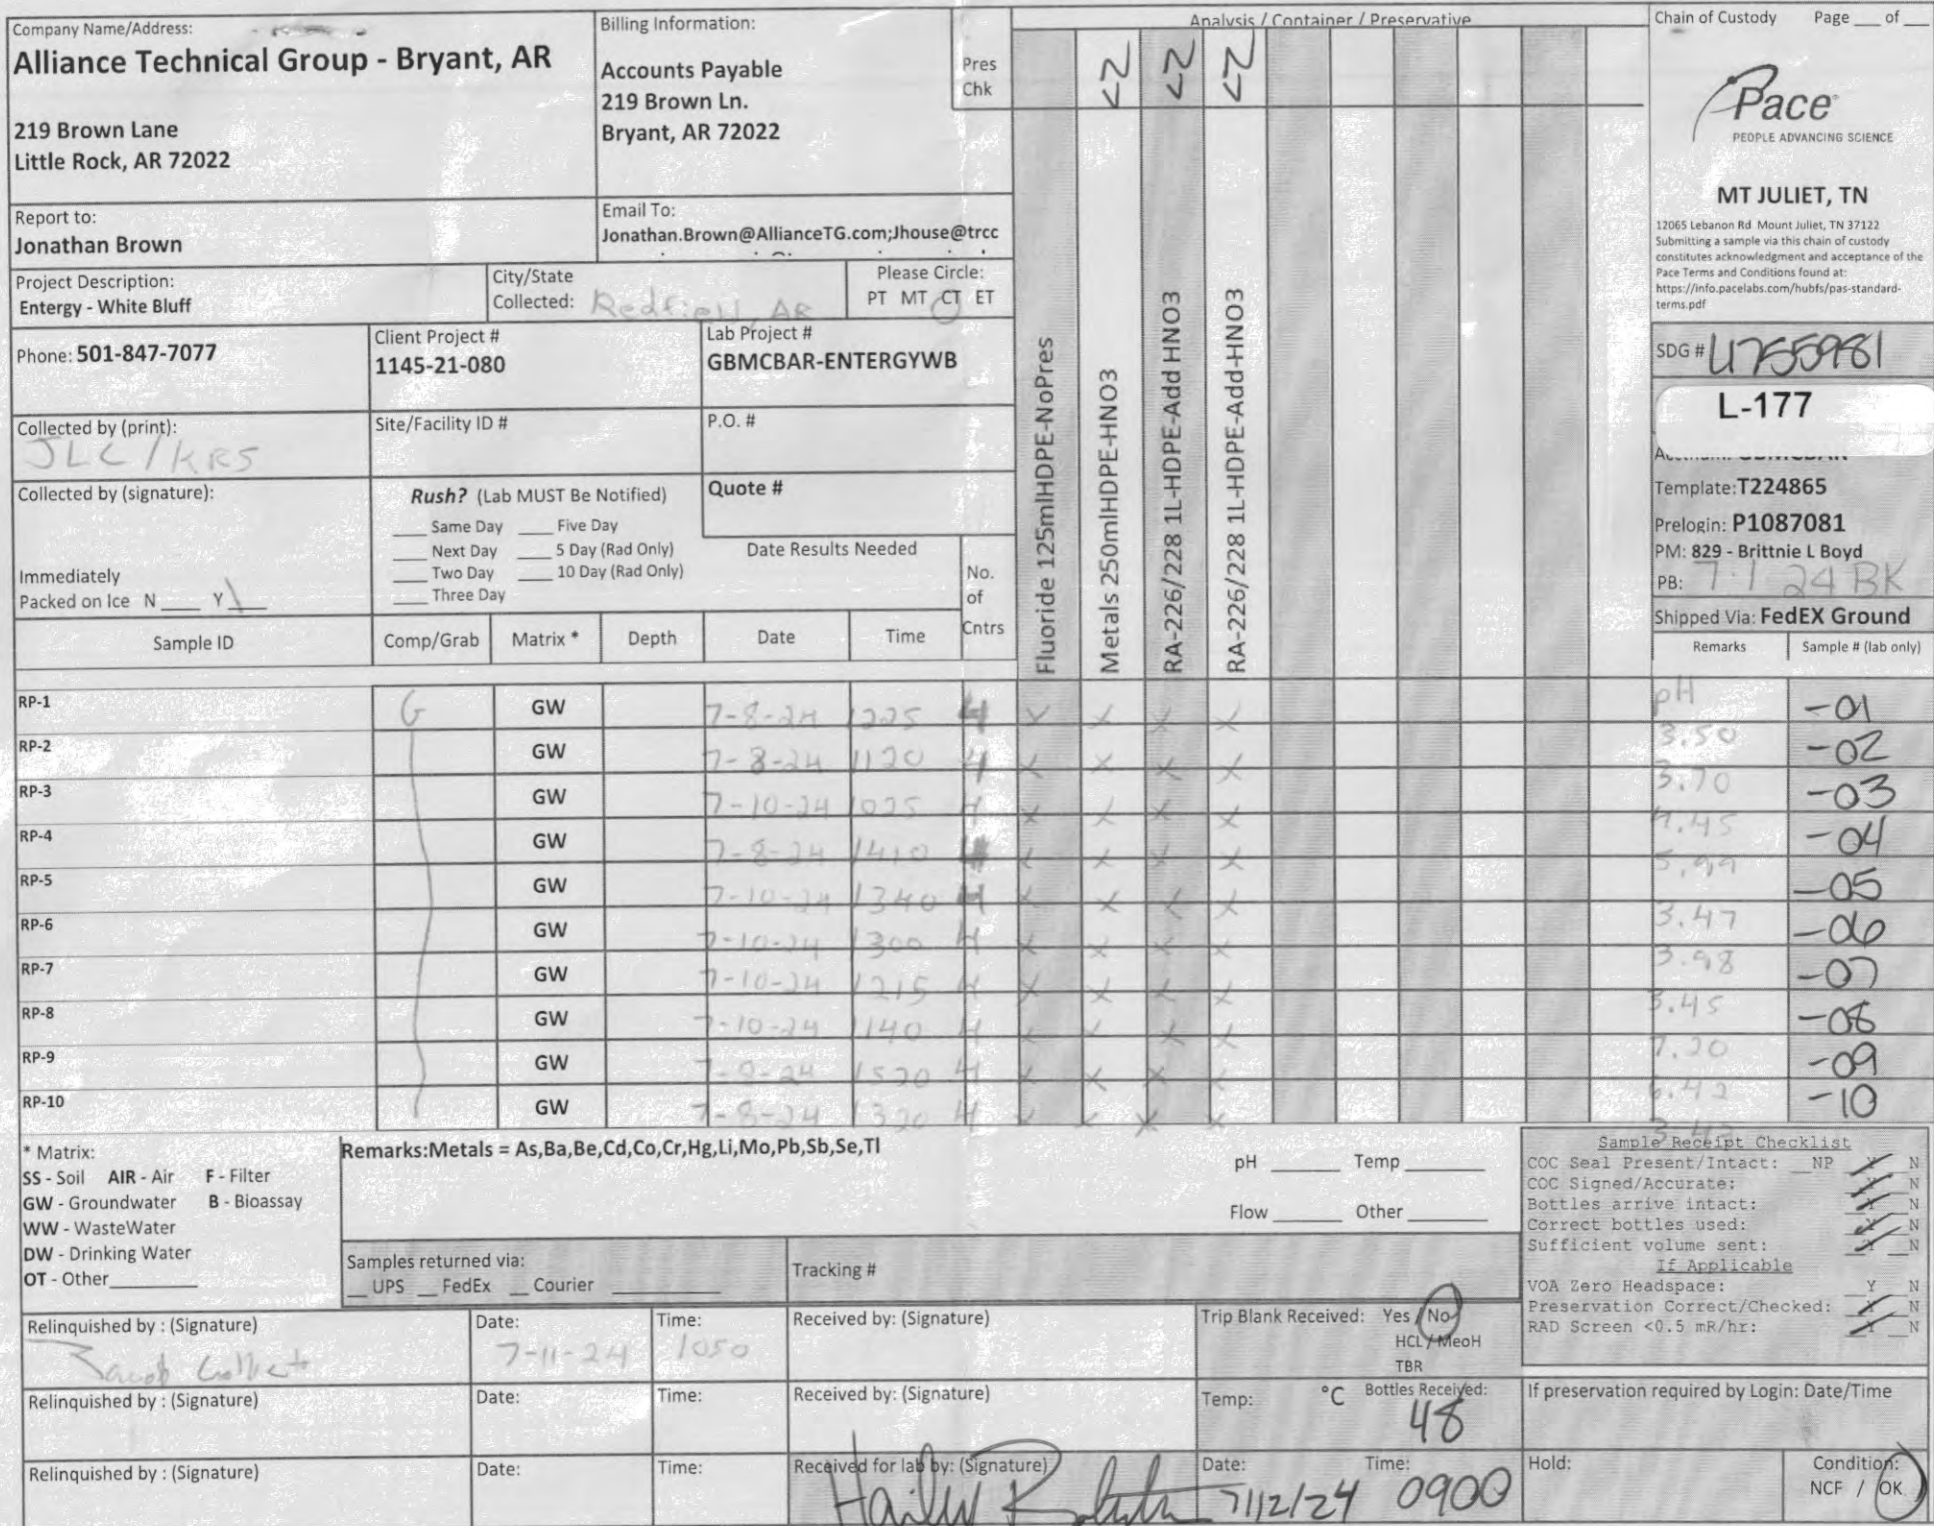 Company Name/Address:
Alliance Technical Group - Bryant, AR
219 Brown Lane
Little Rock, AR 72022
Billing Information:
Accounts Payable
219 Brown Ln.
Bryant, AR 72022
Pres
Chk
Analysis / Container / Preservative
<2 <2 <2
Chain of Custody Page ___ of ___
Pace
PEOPLE ADVANCING SCIENCE
MT JULIET, TN
12065 Lebanon Rd Mount Juliet, TN 37122
Submitting a sample via this chain of custody
constitutes acknowledgment and acceptance of the
Pace Terms and Conditions found at:
https://info.pacelabs.com/hubfs/pas-standard-
terms.pdf
Report to:
Jonathan Brown
Email To:
Jonathan.Brown@AllianceTG.com;Jhouse@trcc
Project Description:
Entergy - White Bluff
City/State
Collected: Redfield, AR
Please Circle:
PT MT CT ET
Phone: 501-847-7077
Client Project #
1145-21-080
Lab Project #
GBMCBAR-ENTERGYWB
Collected by (print):
JLC/KRS
Site/Facility ID #
P.O. #
Collected by (signature):
Rush? (Lab MUST Be Notified)
___ Same Day ___ Five Day
___ Next Day ___ 5 Day (Rad Only)
___ Two Day ___ 10 Day (Rad Only)
___ Three Day
Quote #
Date Results Needed
Immediately
Packed on Ice N ___ Y ___
No.
of
Cntrs
Fluoride 125mlHDPE-NoPres
Metals 250mlHDPE-HNO3
RA-226/228 1L-HDPE-Add HNO3
RA-226/228 1L-HDPE-Add-HNO3
SDG # L1755981
L-177
Template: T224865
Prelogin: P1087081
PM: 829 - Brittnie L Boyd
PB: 7-1-24 BK
Shipped Via: FedEX Ground
Sample ID Comp/Grab Matrix * Depth Date Time
Remarks Sample # (lab only)
pH
RP-1 G GW 7-8-24 1225 4 X X X X 3.50 -01
RP-2 GW 7-8-24 1120 4 X X X X 3.70 -02
RP-3 GW 7-10-24 1025 4 X X X X -03
RP-4 GW 7-8-24 1410 4 X X X X 5.99 -04
RP-5 GW 7-10-24 1340 4 X X X X 3.47 -05
RP-6 GW 7-10-24 1300 4 X X X X 3.98 -06
RP-7 GW 7-10-24 1215 4 X X X X 3.45 -07
RP-8 GW 7-10-24 1140 4 X X X X 7.20 -08
RP-9 GW 1520 4 X X X X 6.42 -09
RP-10 GW 7-8-24 1320 4 X X X X -10
* Matrix:
SS - Soil AIR - Air F - Filter
GW - Groundwater B - Bioassay
WW - WasteWater
DW - Drinking Water
OT - Other________
Remarks:Metals = As,Ba,Be,Cd,Co,Cr,Hg,Li,Mo,Pb,Sb,Se,Tl
pH ______ Temp ______
Flow ______ Other ______
Samples returned via:
__ UPS __ FedEx __ Courier ________
Tracking #
Sample Receipt Checklist
COC Seal Present/Intact: __NP Y N
COC Signed/Accurate: Y N
Bottles arrive intact: Y N
Correct bottles used: Y N
Sufficient volume sent: Y N
If Applicable
VOA Zero Headspace: Y N
Preservation Correct/Checked: Y N
RAD Screen <0.5 mR/hr: Y N
Relinquished by : (Signature)
Date:
7-11-24
Time:
1050
Received by: (Signature)
Trip Blank Received: Yes / No
HCL / MeoH
TBR
Relinquished by : (Signature)
Date:
Time:
Received by: (Signature)
Temp: °C Bottles Received:
48
If preservation required by Login: Date/Time
Relinquished by : (Signature)
Date:
Time:
Received for lab by: (Signature)
Date:
7/12/24
Time:
0900
Hold:
Condition:
NCF / OK